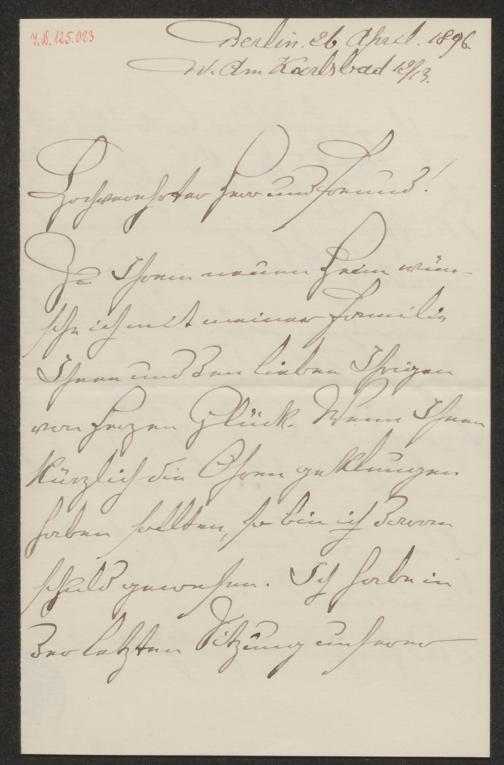 J.N. 125.023
Berlin. 26 April. 1896.
W. Am Karlsbad 12/13.
Hochverehrter Herr und Freund!
Zu Ihrem neuen Heim wün-
sche ich mit meiner Familie
Ihnen und den lieben Ihrigen
von Herzen Glück. Wenn Ihnen
kürzlich die Ohren geklungen
haben sollten, so bin ich daran
schuld gewesen. Ich habe in
der letzten Sitzung unserer